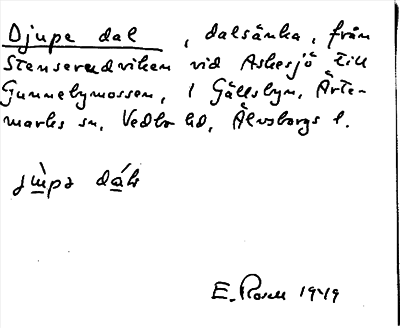 Djupe dal, dalsänka, från
Stenserudviken vid Askesjö till
Gunnebymossen, i Gällsbyn, Ärte-
marks sn, Vedbo hd, Älvsborgs l.
jùpə dáɫ
E. Rosell 1949